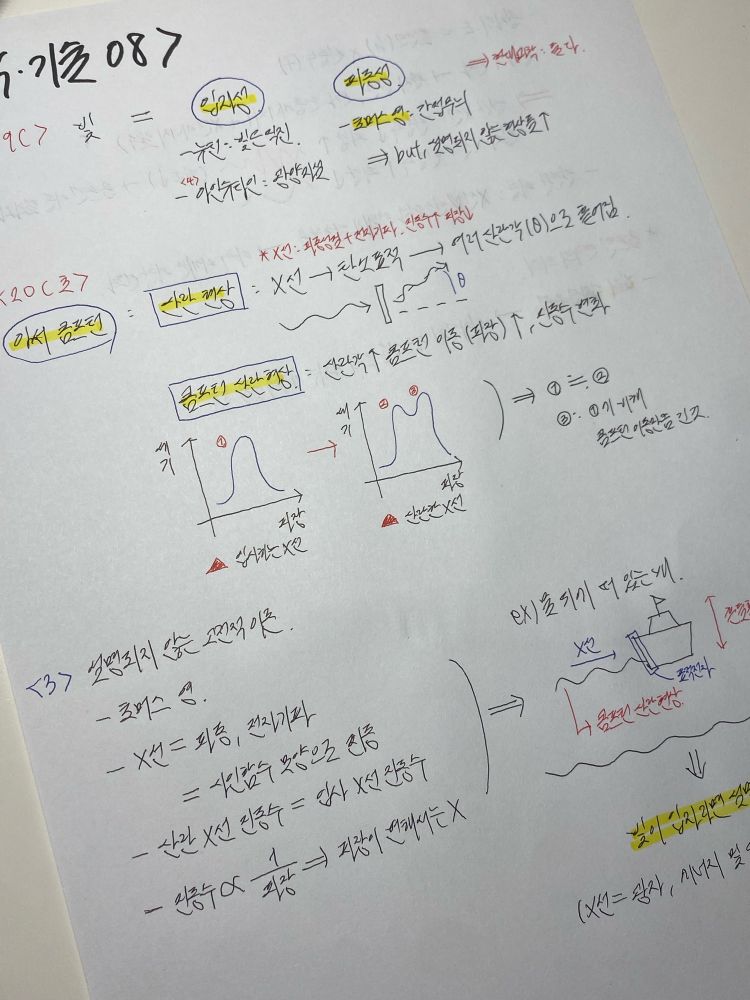 ·기술 08>
9C> 빛 = 입자성 파동성 ⇒ 현대과학: 둘 다.
- 뉴턴: 빛은 입자. - 토머스 영: 간섭무늬
<4> - 아인슈타인: 광양자설 ⇒ but, 설명되지 않는 현상들↑
* X선: 파동성질+전자기파, 진동수↑ 파장↓
<20C초>
아서 콤프턴 = 산란 현상 = X선 → 탄소표적 → 여러 산란각(θ)으로 흩어짐.
θ
콤프턴 산란 현상 = 산란각↑ 콤프턴 이동(파장)↑, 진동수 변화
세기 ① → 세기 ② ③ ⇒ ① ≒ ②
③: ①기
콤프턴 이동만큼 긴 것.
파장 파장
▲ 입사하는 X선 ▲ 산란한 X선
ex) 물 위에 떠 있는 배.
<3> 설명되지 않는 고전적 이론.
X선
표적전자
콤프턴 산란현상
- 토머스 영.
- X선 = 파동, 전자기파
= 사인함수 모양으로 진동 ⇒
- 산란 X선 진동수 = 입사 X선 진동수
- 진동수 ∝ 1/파장 ⇒ 파장이 변해서는 X
⇓
빛이 입자라면
(X선 = 광자, 에너지 및